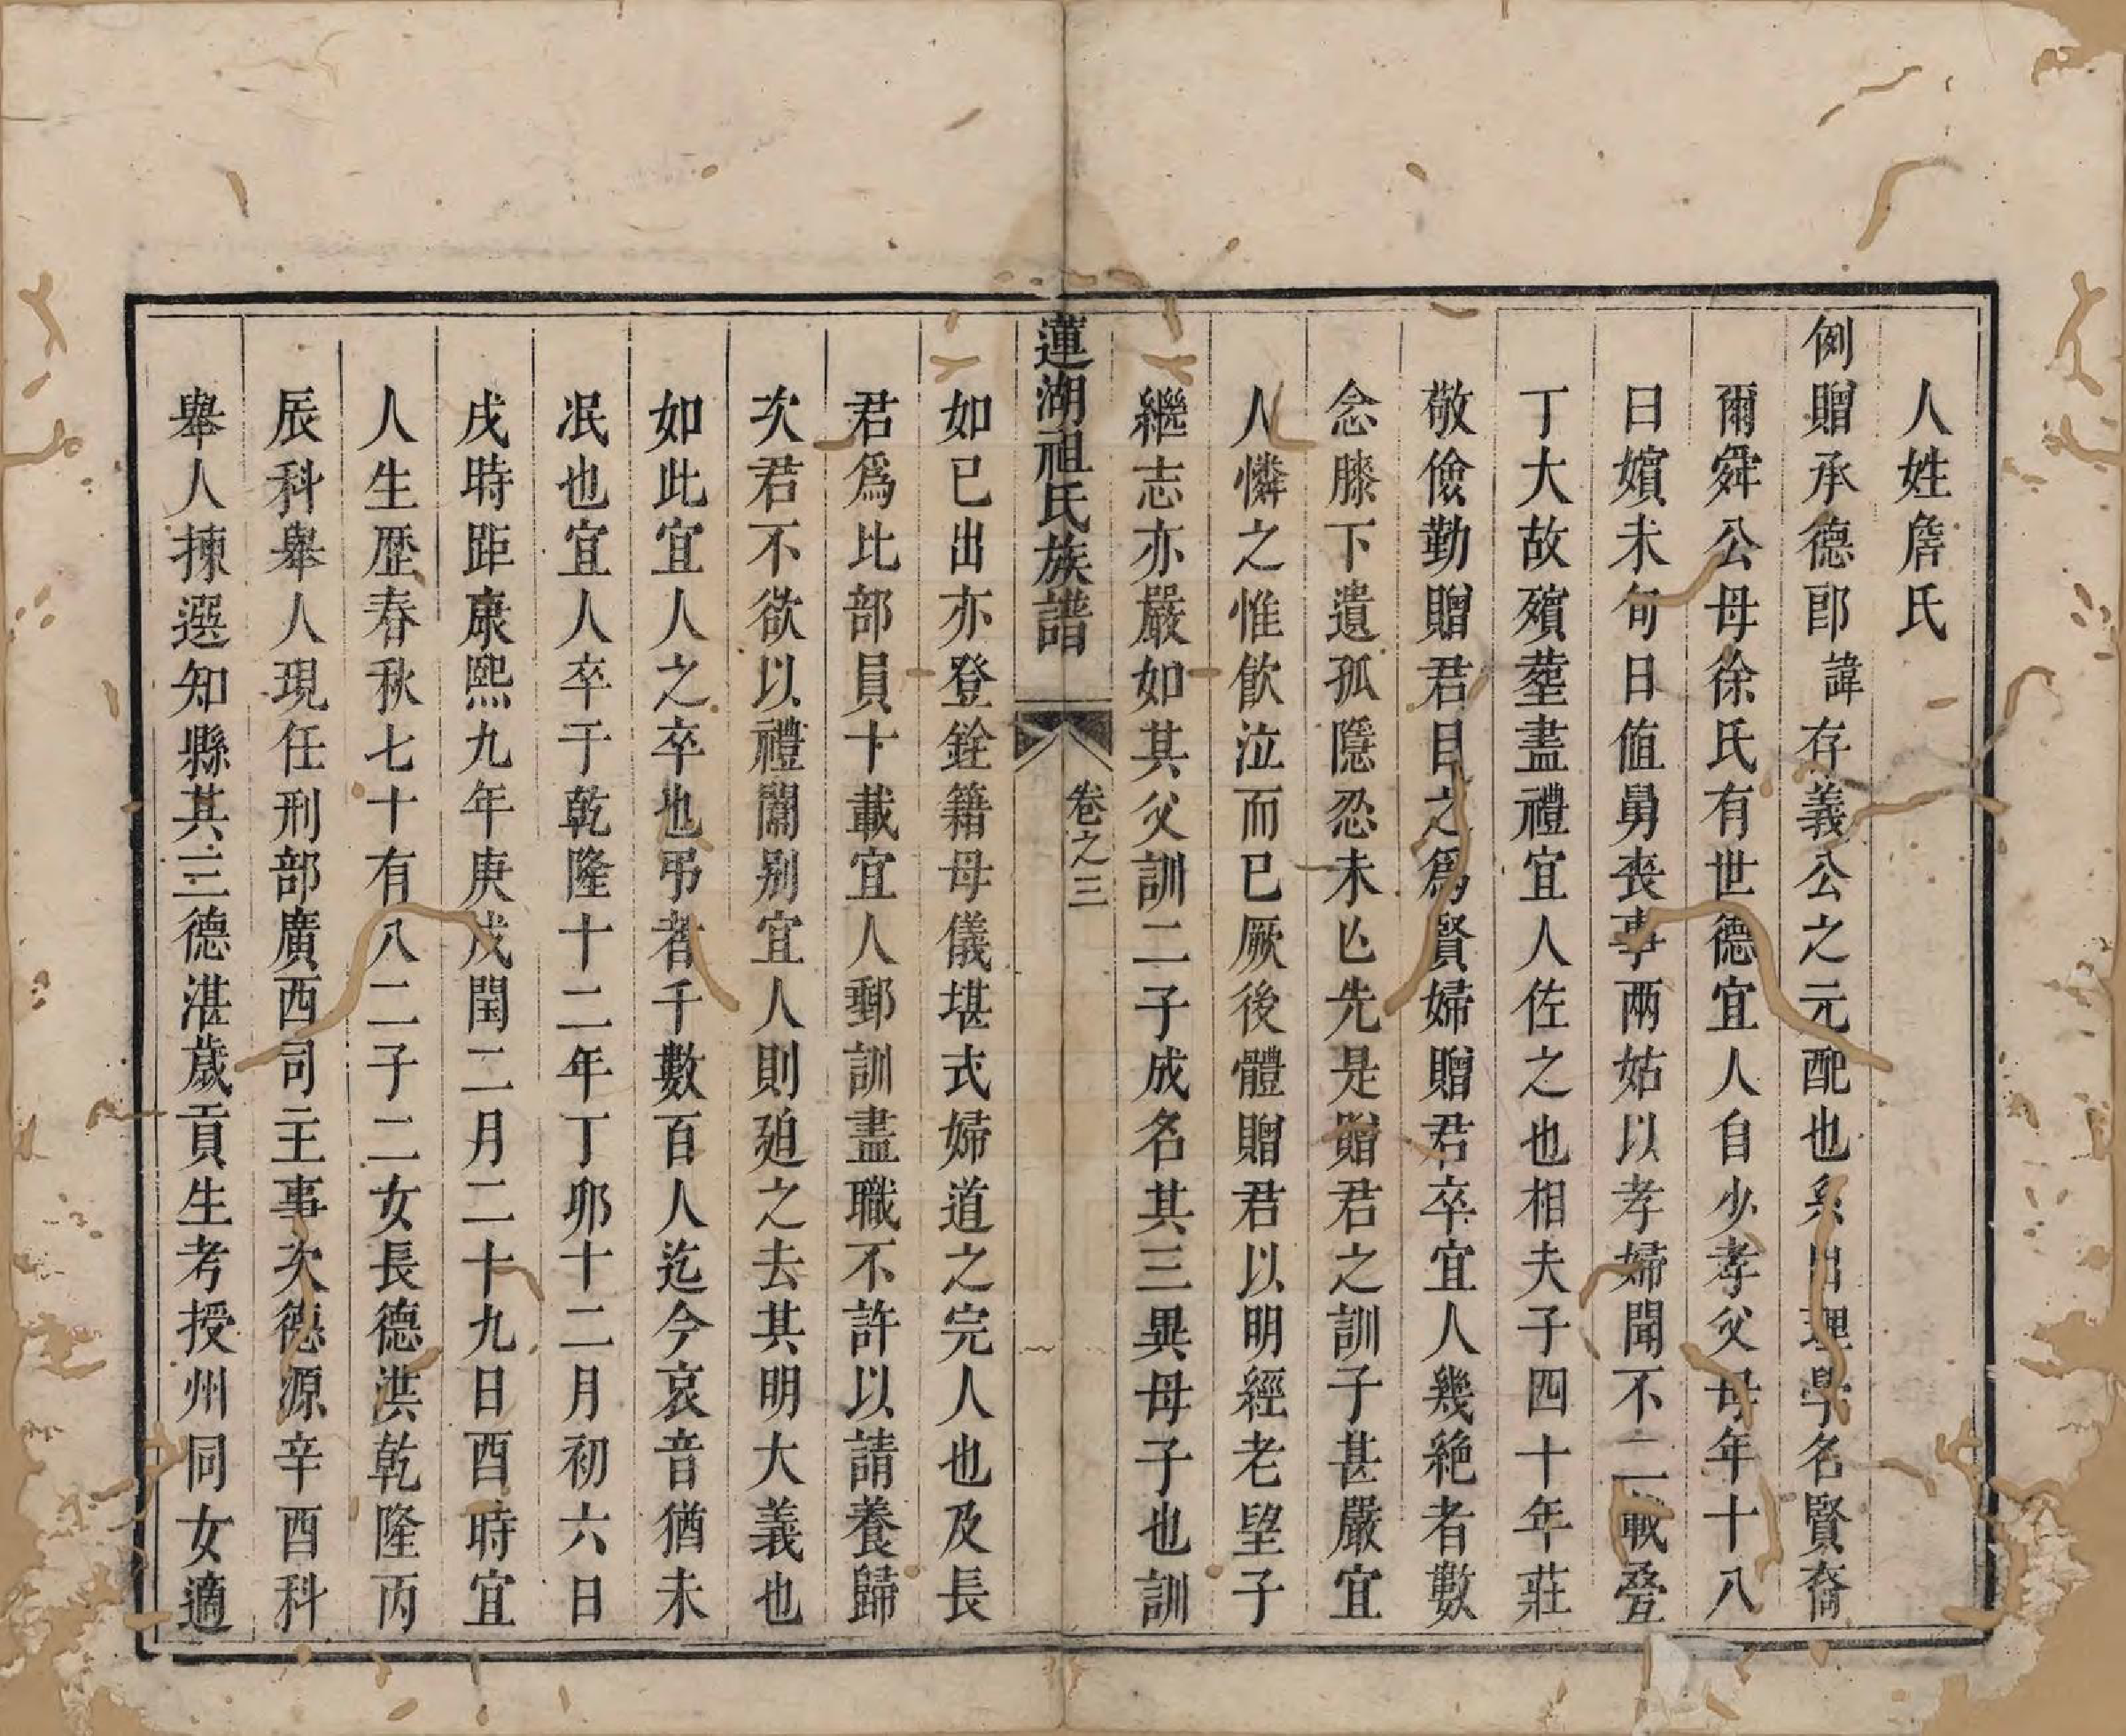 人姓詹氏
例贈承德郎諱存義公之元配也系出理學名賢裔
爾舜公母徐氏有世德宜人自少孝父母年十八
曰嬪未旬日值舅喪事兩姑以孝婦聞不二載疊
丁大故殯塟盡禮宜人佐之也相夫子四十年莊
敬儉勤贈君目之為賢婦贈君卒宜人幾絶者數
念膝下遺孤隱忍未亾先是贈君之訓子甚嚴宜
人憐之惟飲泣而已厥後體贈君以明經老望子
繼志亦嚴如其父訓二子成名其三異母子也訓
蓮湖祖氏族譜 卷之三
如已出亦登銓籍母儀堪式婦道之完人也及長
君爲比部員十載宜人郵訓盡職不許以請養歸
次君不欲以禮闈别宜人則廹之去其明大義也
如此宜人之卒也弔者千數百人迄今哀音猶未
泯也宜人卒于乾隆十二年丁卯十二月初六日
戌時距康熙九年庚戌閏二月二十九日酉時宜
人生歷春秋七十有八二子二女長德洪乾隆丙
辰科舉人現任刑部廣西司主事次德源辛酉科
舉人揀選知縣其三德湛歲貢生考授州同女適